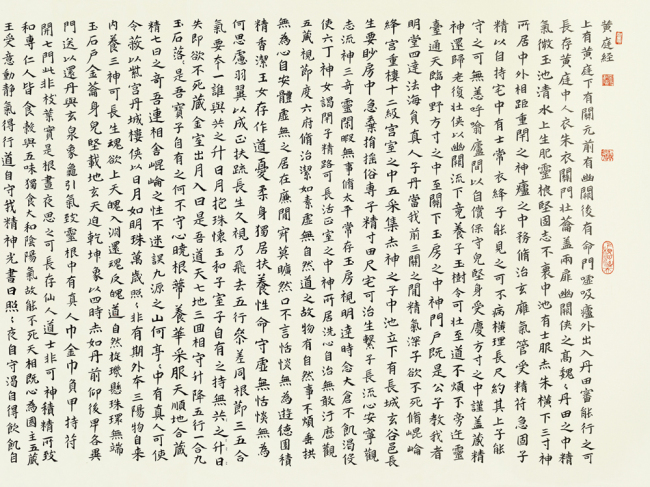 黄庭經
上有黄庭下有關元前有幽闕後有命門嘘吸廬外出入丹田審能行之可
長存黄庭中人衣朱衣關門壮蘥蓋兩扉幽闕俠之高巍〻丹田之中精
氣微玉池清水上生肥靈根堅固志不衰中池有士服赤朱横下三寸神
所居中外相距重閉之神廬之中務脩治玄膺氣管受精符急固子
精以自持宅中有士常衣絳子能見之可不病横理長尺約其上子能
守之可無恙呼噏廬間以自償保守完堅身受慶方寸之中謹蓋藏精
神還歸老復壮俠以幽闕流下竟養子玉樹令可壮至道不煩不旁迕靈
臺通天臨中野方寸之中至關下玉房之中神門户既是公子教我者
明堂四達法海員真人子丹當我前三關之間精氣深子欲不死脩崐崘
絳宫重樓十二級宫室之中五采集赤神之子中池立下有長城玄谷邑長
生要眇房中急棄捐摇俗專子精寸田尺宅可治生繫子長流心安寧觀
志流神三奇靈閑暇無事脩太平常存玉房視明達時念大倉不飢渴役
使六丁神女謁閉子精路可長活正室之中神所居洗心自治無敢汙歷觀
五藏視節度六府脩治潔如素虚無自然道之故物有自然事不煩垂拱
無為心自安體虚無之居在廉間寂寞曠然口不言恬惔無為遊德園積
精香潔玉女存作道憂柔身獨居扶養性命守虚無恬惔無為
何思慮羽翼以成正扶疏長生久視乃飛去五行參差同根節三五合
氣要本一誰與共之升日月抱珠懷玉和子室子自有之持無共之升日
失即欲不死藏金室出月入日是吾道天七地三回相守升降五行一合九
玉石落是吾寶子自有之何不守心曉根蔕養華采服天順地合藏
精七日之奇吾連相舍崐崘之性不迷誤九源之山何亭〻中有真人可使
令蔽以紫宫丹城樓俠以日月如明珠萬歲照〻非有期外本三陽物自來
内養三神可長生魂欲上天魄入淵還魂反魄道自然旋璣懸珠環無端
玉石戶金籥身完堅載地玄天迫乾坤象以四時赤如丹前仰後卑各異
門送以還丹與玄泉象龜引氣致靈根中有真人巾金巾負甲持符
開七門此非枝葉實是根晝夜思之可長存仙人道士非可神積精所致
和專仁人皆食穀與五味獨食大和陰陽氣故能不死天相既心為國主五藏
王受意動静氣得行道自守我精神光晝日照〻夜自守渴自得飲飢自